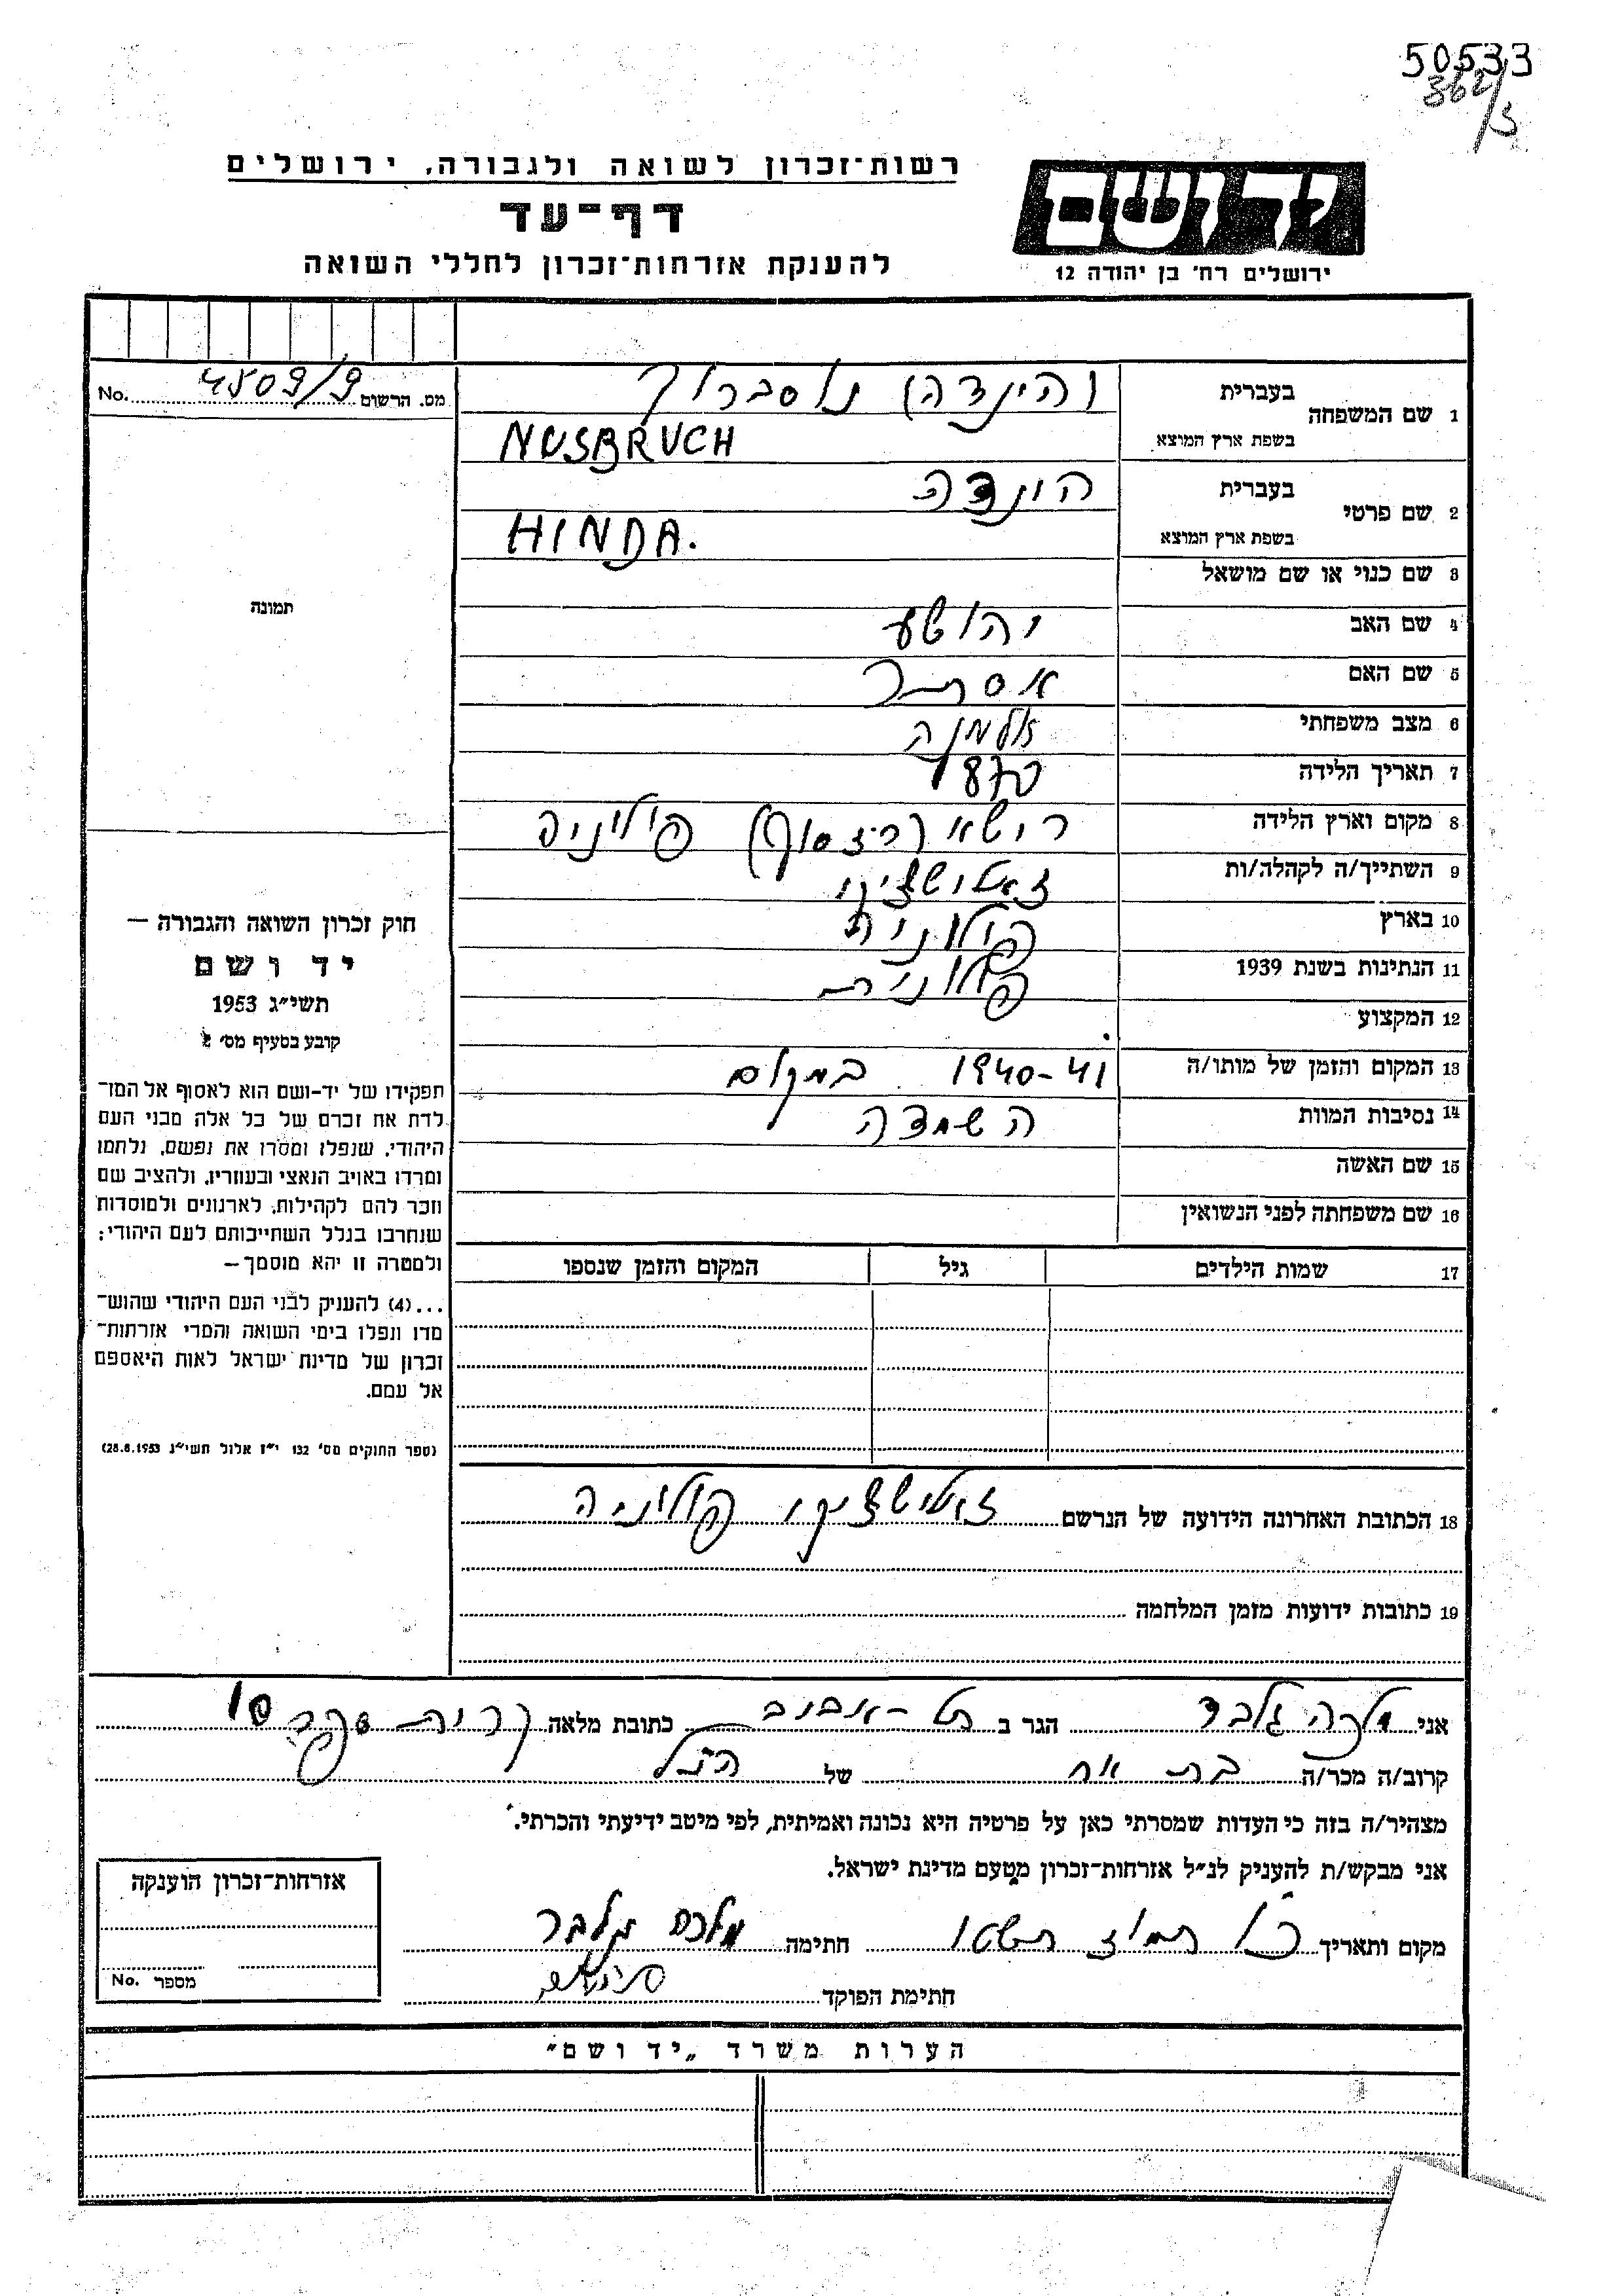 50533
362/3
רשות־זכרון לשואה ולגבורה, ירושלים
יד ושם
דף־עד
להענקת אזרחות־זכרון לחללי השואה
ירושלים רח' בן יהודה 12
מס. הרשום 4509/9 No.
1 שם המשפחה בעברית (הינדה) נוסברוך
בשפת ארץ המוצא NUSBRUCH
2 שם פרטי בעברית הינדה
בשפת ארץ המוצא HINDA.
3 שם כנוי או שם מושאל
תמונה
4 שם האב יהושע
5 שם האם אסתר
6 מצב משפחתי אלמנה
7 תאריך הלידה 1870
8 מקום וארץ הלידה רישא (רזסוף) פולניה
9 השתייך/ה לקהלה/ות
10 בארץ פולניה
11 הנתינות בשנת 1939 פולנית
12 המקצוע
13 המקום והזמן של מותו/ה 1940-41 במקום
14 נסיבות המוות השמדה
15 שם האשה
16 שם משפחתה לפני הנשואין
17 שמות הילדים גיל המקום והזמן שנספו
חוק זכרון השואה והגבורה —
יד ושם
תשי"ג 1953
קובע בסעיף מס' 2
תפקידו של יד-ושם הוא לאסוף אל המו־
לדת את זכרם של כל אלה מבני העם
היהודי, שנפלו ומסרו את נפשם, נלחמו
ומרדו באויב הנאצי ובעוזריו, ולהציב שם
וזכר להם לקהילות, לארגונים ולמוסדות
שנחרבו בגלל השתייכותם לעם היהודי;
ולמטרה זו יהא מוסמך —
...(4) להעניק לבני העם היהודי שהוש־
מדו ונפלו בימי השואה והמרי אזרחות־
זכרון של מדינת ישראל לאות היאספם
אל עמם.
(ספר החוקים מס' 132 י"ז אלול תשי"ג 28.8.1953)
18 הכתובת האחרונה הידועה של הנרשם פולניה
19 כתובות ידועות מזמן המלחמה
אני מלכה גלבר הגר ב תל-אביב כתובת מלאה קרית ספר 10
קרוב/ה מכר/ה בת אח של הנ"ל
מצהיר/ה בזה כי העדות שמסרתי כאן על פרטיה היא נכונה ואמיתית, לפי מיטב ידיעתי והכרתי.
אני מבקש/ת להעניק לנ"ל אזרחות־זכרון מטעם מדינת ישראל.
מקום ותאריך כ"ו תמוז תשטו חתימה מלכה גלבר
חתימת הפוקד
אזרחות־זכרון הוענקה
מספר No.
הערות משרד „יד ושם"